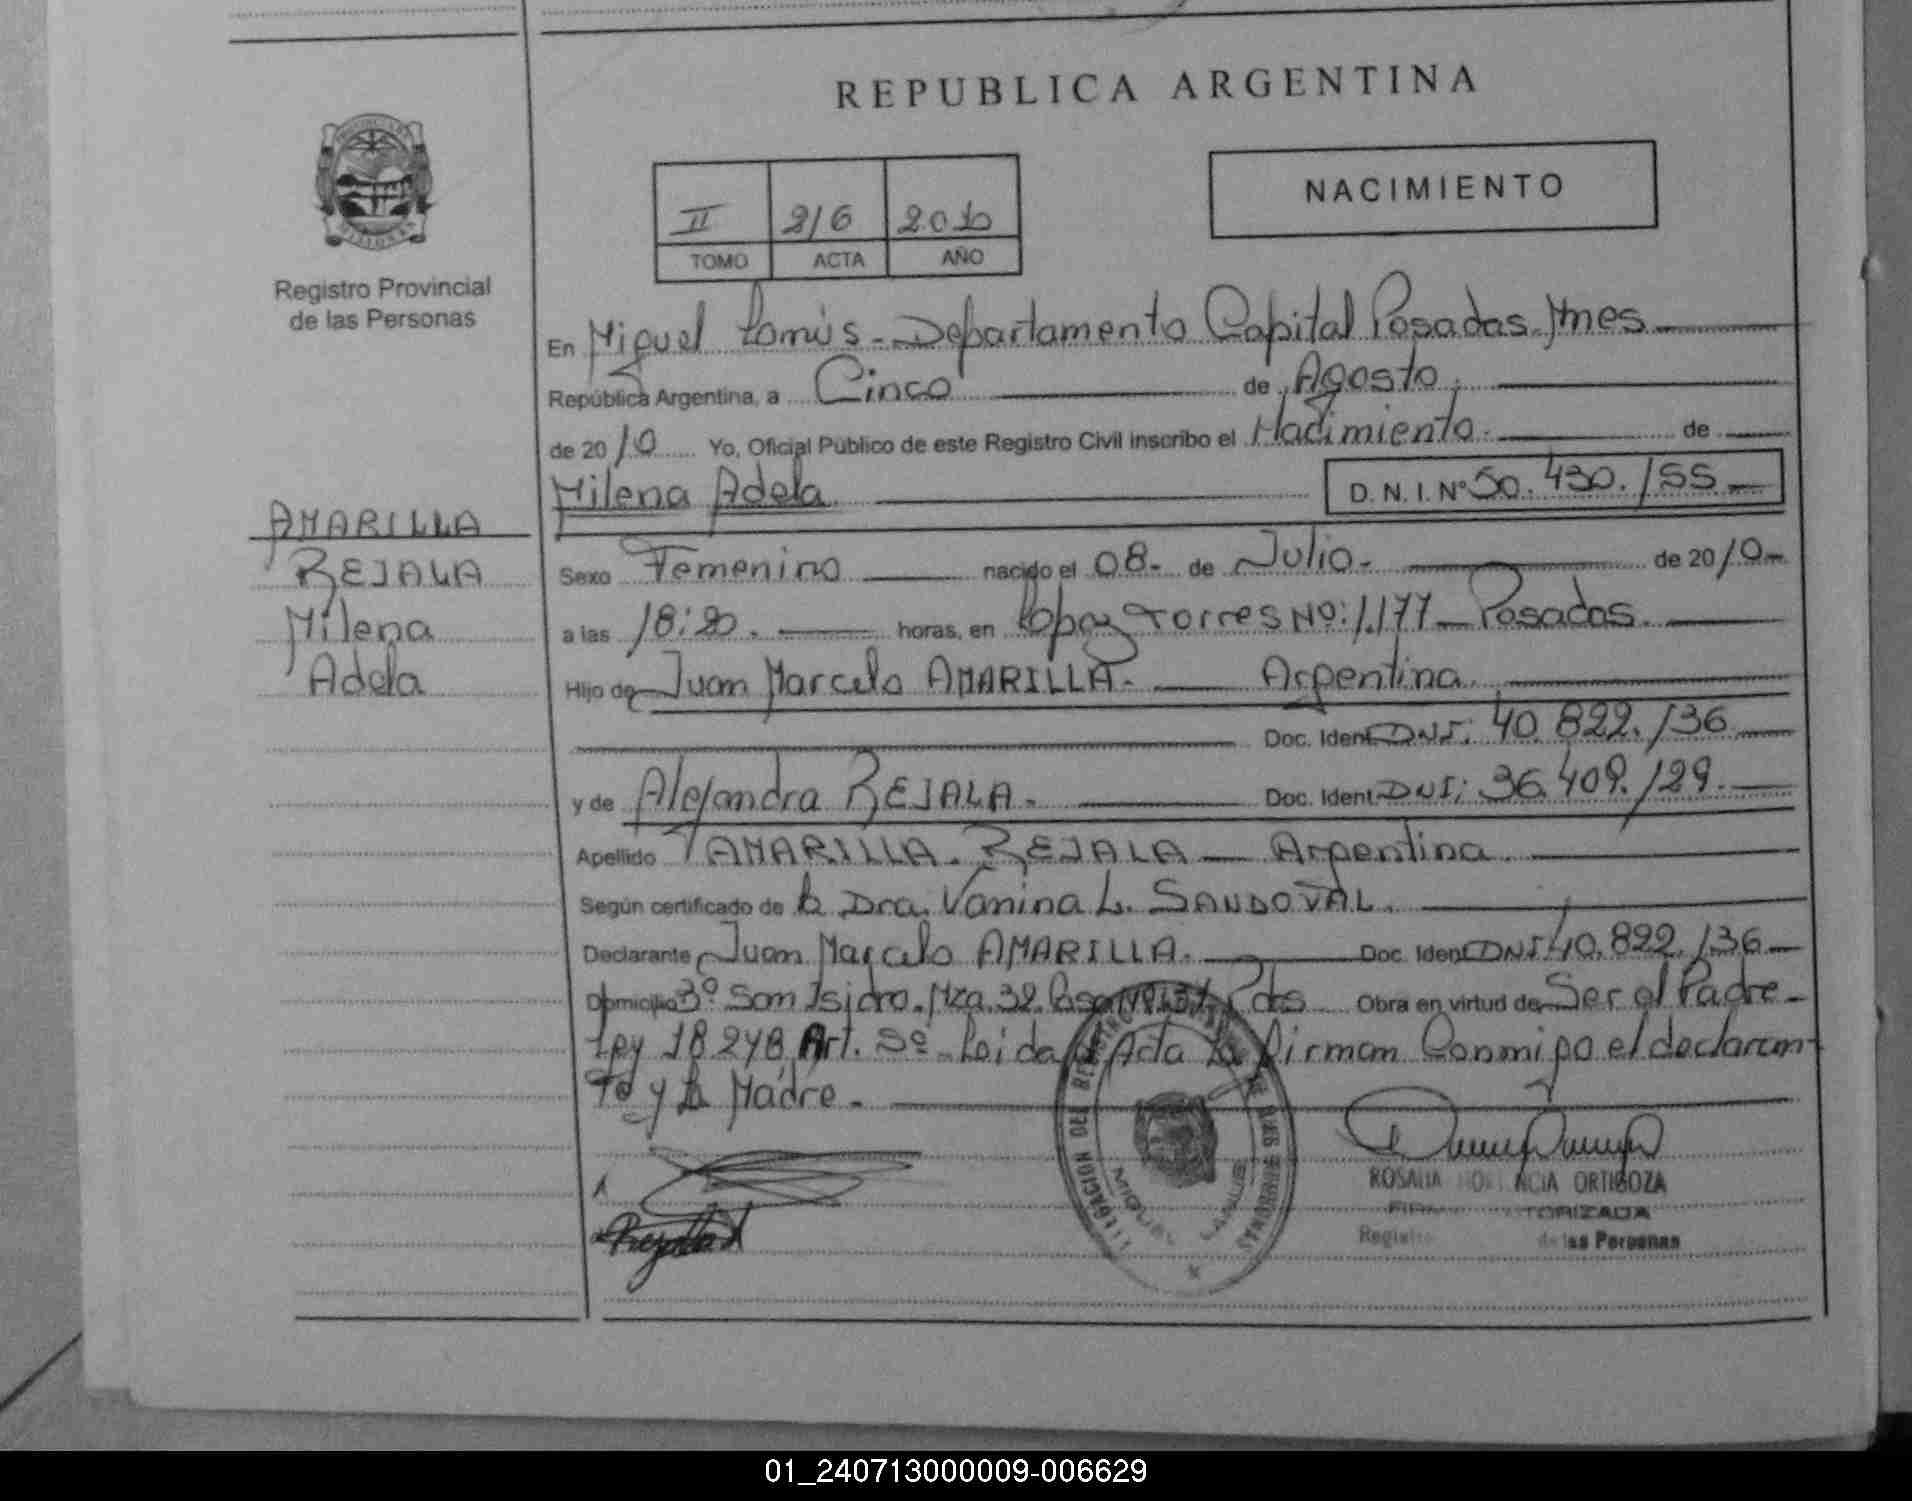 REPUBLICA ARGENTINA
NACIMIENTO
II 216 2010
TOMO ACTA AÑO
Registro Provincial
de las Personas
En Miguel Lanús - Departamento Capital Posadas Mnes
República Argentina, a Cinco de Agosto
de 2010 Yo, Oficial Público de este Registro Civil inscribo el Nacimiento de
Milena Adela D.N.I.Nº 50.430.155
AMARILLA
REJALA
Milena
Adela
Sexo Femenino nacido el 08 - de Julio - de 2010
a las 18:20 . horas, en Lopez Torres Nº: 1.177 - Posadas.
Hijo de Juan Marcelo AMARILLA - Argentina.
Doc. Ident DNI: 40.822.136
y de Alejandra REJALA. Doc. Ident DNI: 36.409.129.
Apellido AMARILLA. REJALA - Argentina.
Según certificado de la Dra. Vanina L. SANDOVAL.
Declarante Juan Marcelo AMARILLA. Doc. Ident DNI 40.822.136
Domicilio Bº San Isidro. Mza. 32. Casa Pdas Obra en virtud de Ser el Padre -
Ley 18248 Art. 5º Leida el Acta La firman Conmigo el declaran-
te y La Madre -
DELEGACION DEL REGISTRO DE LAS PERSONAS
MIGUEL LANUS
ROSALIA ORTIGOZA
Registro de las Personas
01_240713000009-006629